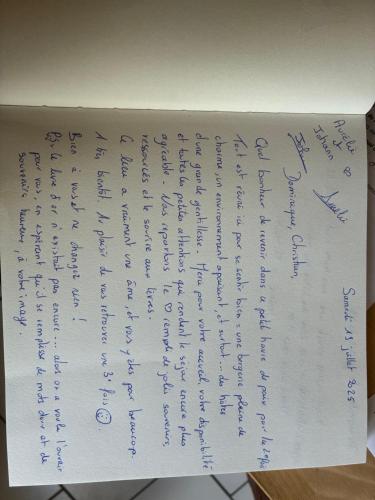 Samedi 19 juillet 2025
Dominique, Christian,
Quel bonheur de revenir dans ce petit havre de paix pour la 2ème
Tout est réuni ici pour se sentir bien : une bergerie pleine de
charme, un environnement apaisant, et surtout... des hôtes
d'une grande gentillesse. Merci pour votre accueil, votre disponibilité
et toutes les petites attentions qui rendent le séjour encore plus
agréable. Nous repartons le ♡ rempli de jolis souvenirs,
ressourcés et le sourire aux lèvres.
Ce lieu a vraiment une âme, et vous y êtes pour beaucoup.
A très bientôt. Au plaisir de vous retrouver une 3e fois ☺.
Bien à vous et ne changez rien !
PS : le livre d'or n'existait pas encore... alors on a voulu l'ouvrir
pour vous, en espérant qu'il se remplisse de mots doux et de
souvenirs heureux, à votre image.
Aurélie
&
Johann